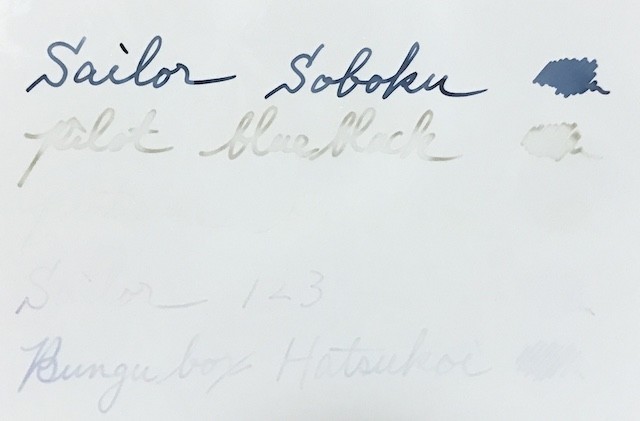 Sailor Soboku
Pilot blue black
Sailor 123
Bungubox Hatsukoi